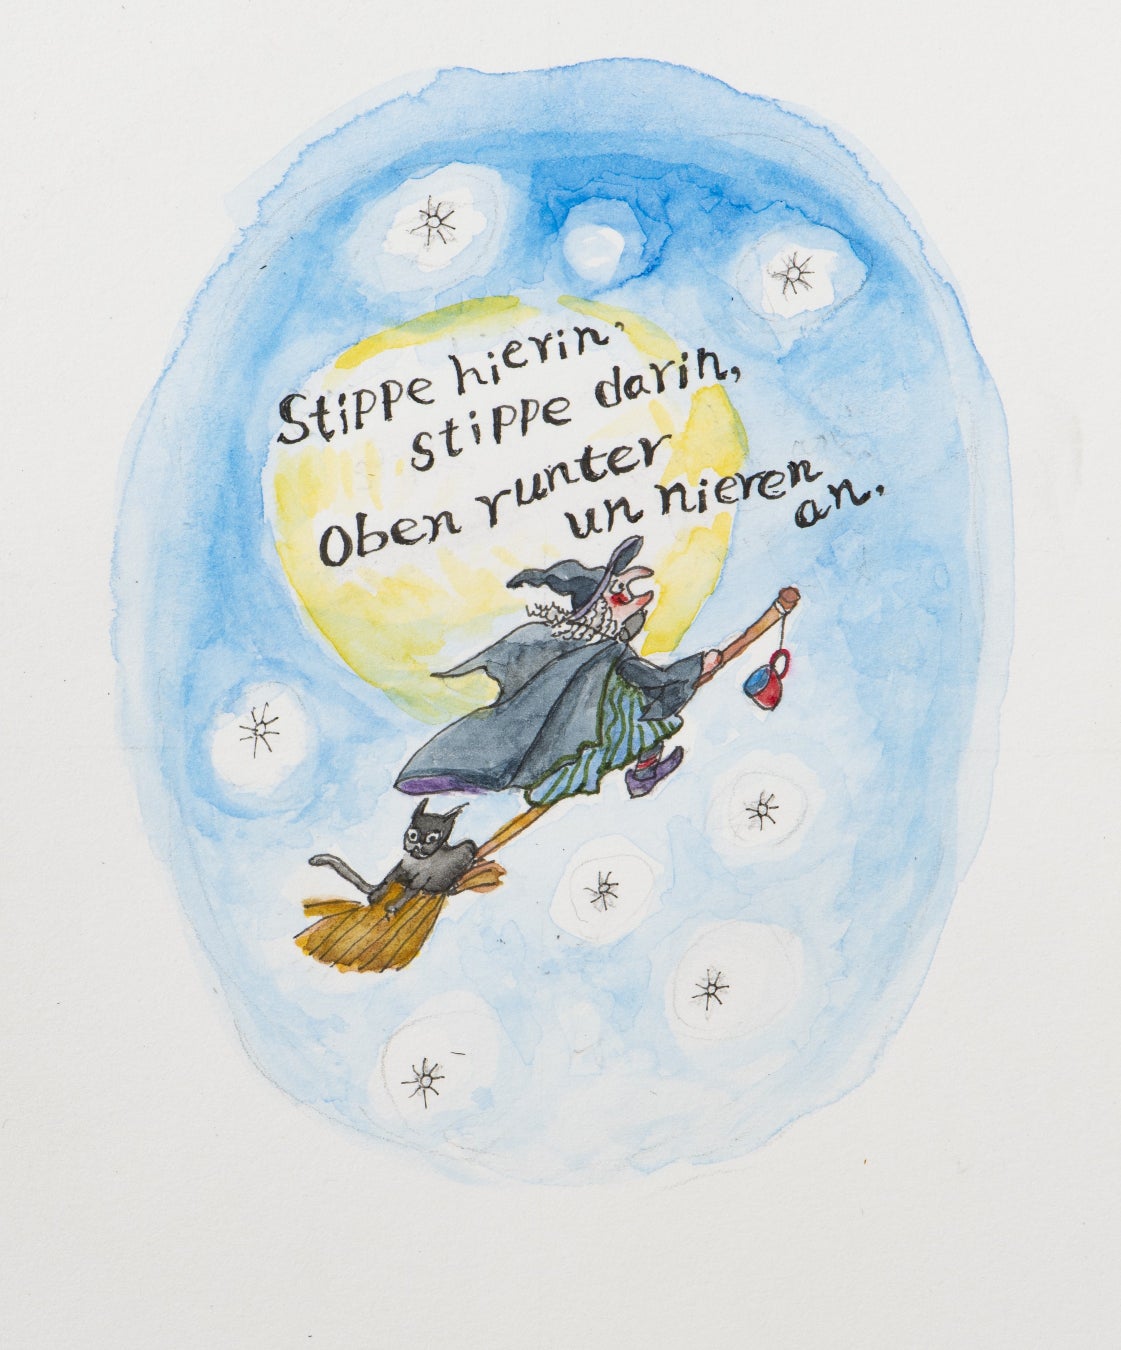 Stippe hierin,
stippe darin,
Oben runter
un nieren
an.